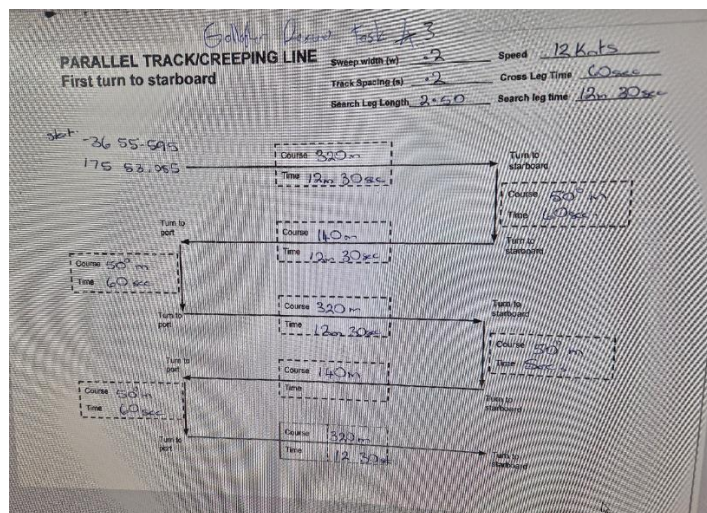 Task # 3
PARALLEL TRACK/CREEPING LINE
First turn to starboard
Sweep width (w) .2
Speed 12 Knts
Track Spacing (s) .2
Cross Leg Time 60sec
Search Leg Length 2.50
Search leg time 12m 30sec
start -36 55.595
175 53.055
Course 320m
Time 12m 30sec
Turn to
starboard
Course 50° m
Time 60sec
Turn to
port
Course 140m
Time 12m 30sec
Turn to
starboard
Course 50° m
Time 60 sec
Turn to
port
Course 320m
Time 12m 30sec
Turn to
starboard
Course 50° m
Time
Turn to
port
Course 140m
Time
Turn to
starboard
Course 50° m
Time 60sec
Turn to
port
Course 320m
Time 12 30
Turn to
starboard